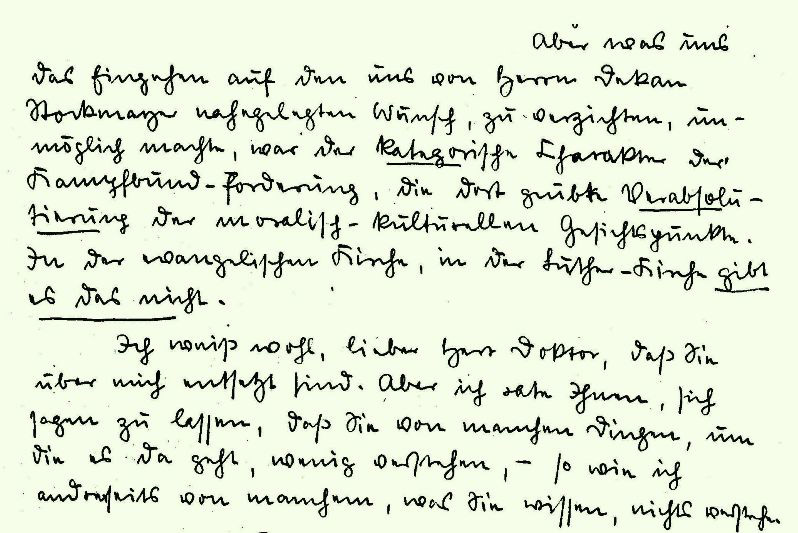 Aber was uns
das Eingehen auf den uns von Herrn Dekan
Stockmayer nahegelegten Wunsch, zu verzichten, un-
möglich machte, war der kategorische Charakter der
Kampfbund-Forderung, die dort geübte Verabsolu-
tierung der moralisch-kulturellen Gesichtspunkte.
In der evangelischen Kirche, in der Luther-Kirche gibt
es das nicht.
Ich weiß wohl, lieber Herr Doktor, daß Sie
über mich entsetzt sind. Aber ich rate Ihnen, sich
sagen zu lassen, daß Sie von manchen Dingen, um
die es da geht, wenig verstehen, – so wie ich
anderseits von manchem, was Sie wissen, nichts verstehe.